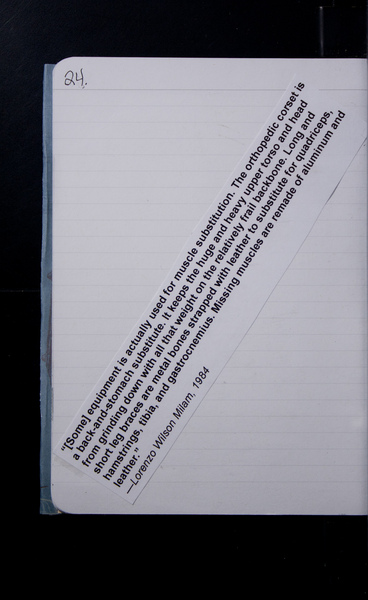 24.
"[Some] equipment is actually used for muscle substitution. The orthopedic corset is
a back-and-stomach substitute. It keeps the huge and heavy upper torso and head
from grinding down with all that weight on the relatively frail backbone. Long and
short leg braces are metal bones strapped with leather to substitute for quadriceps,
hamstrings, tibia, and gastrocnemius. Missing muscles are remade of aluminum and
leather."
—Lorenzo Wilson Milam, 1984